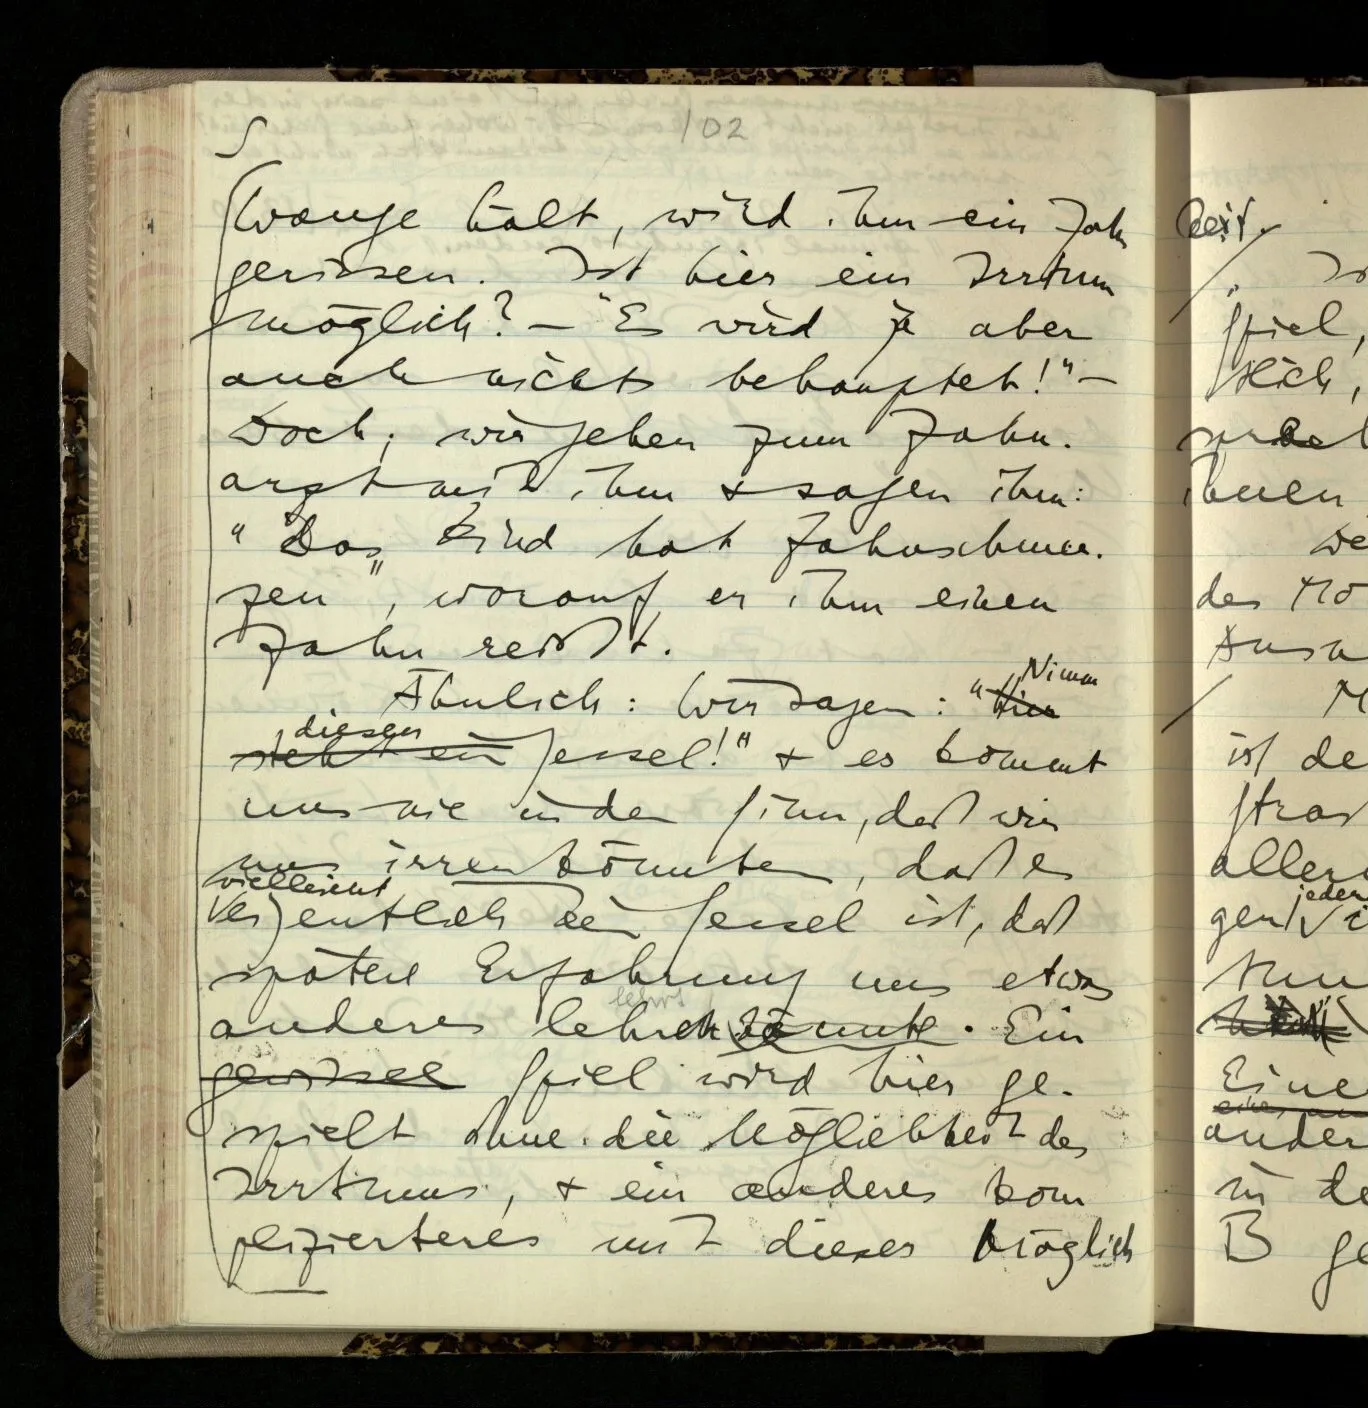 102
S
Wange hält, wird ihm ein Zahn
gerissen. Ist hier ein Irrtum
möglich? – "Es wird ja aber
auch nichts behauptet!" –
Doch; wir gehen zum Zahn-
arzt mit ihm & sagen ihm:
"Das Kind hat Zahnschmer-
zen", worauf er ihm einen
Zahn reißt.
Ähnlich: Wir sagen: "Hier Nimm
steht ein diesen Sessel!" & es kommt
uns nie in den Sinn, daß wir
uns irren könnten, daß es
vielleicht
eigentlich kein Sessel ist, daß
spätere Erfahrung uns etwas
lehrt
anderes lehren könnte. Ein
gewisses Spiel wird hier ge-
spielt ohne die Möglichkeit des
Irrtums, & ein anderes kom
plizierteres mit dieser Möglich
keit.
Spiel,
ihnen
ist
jeder
Eine
B